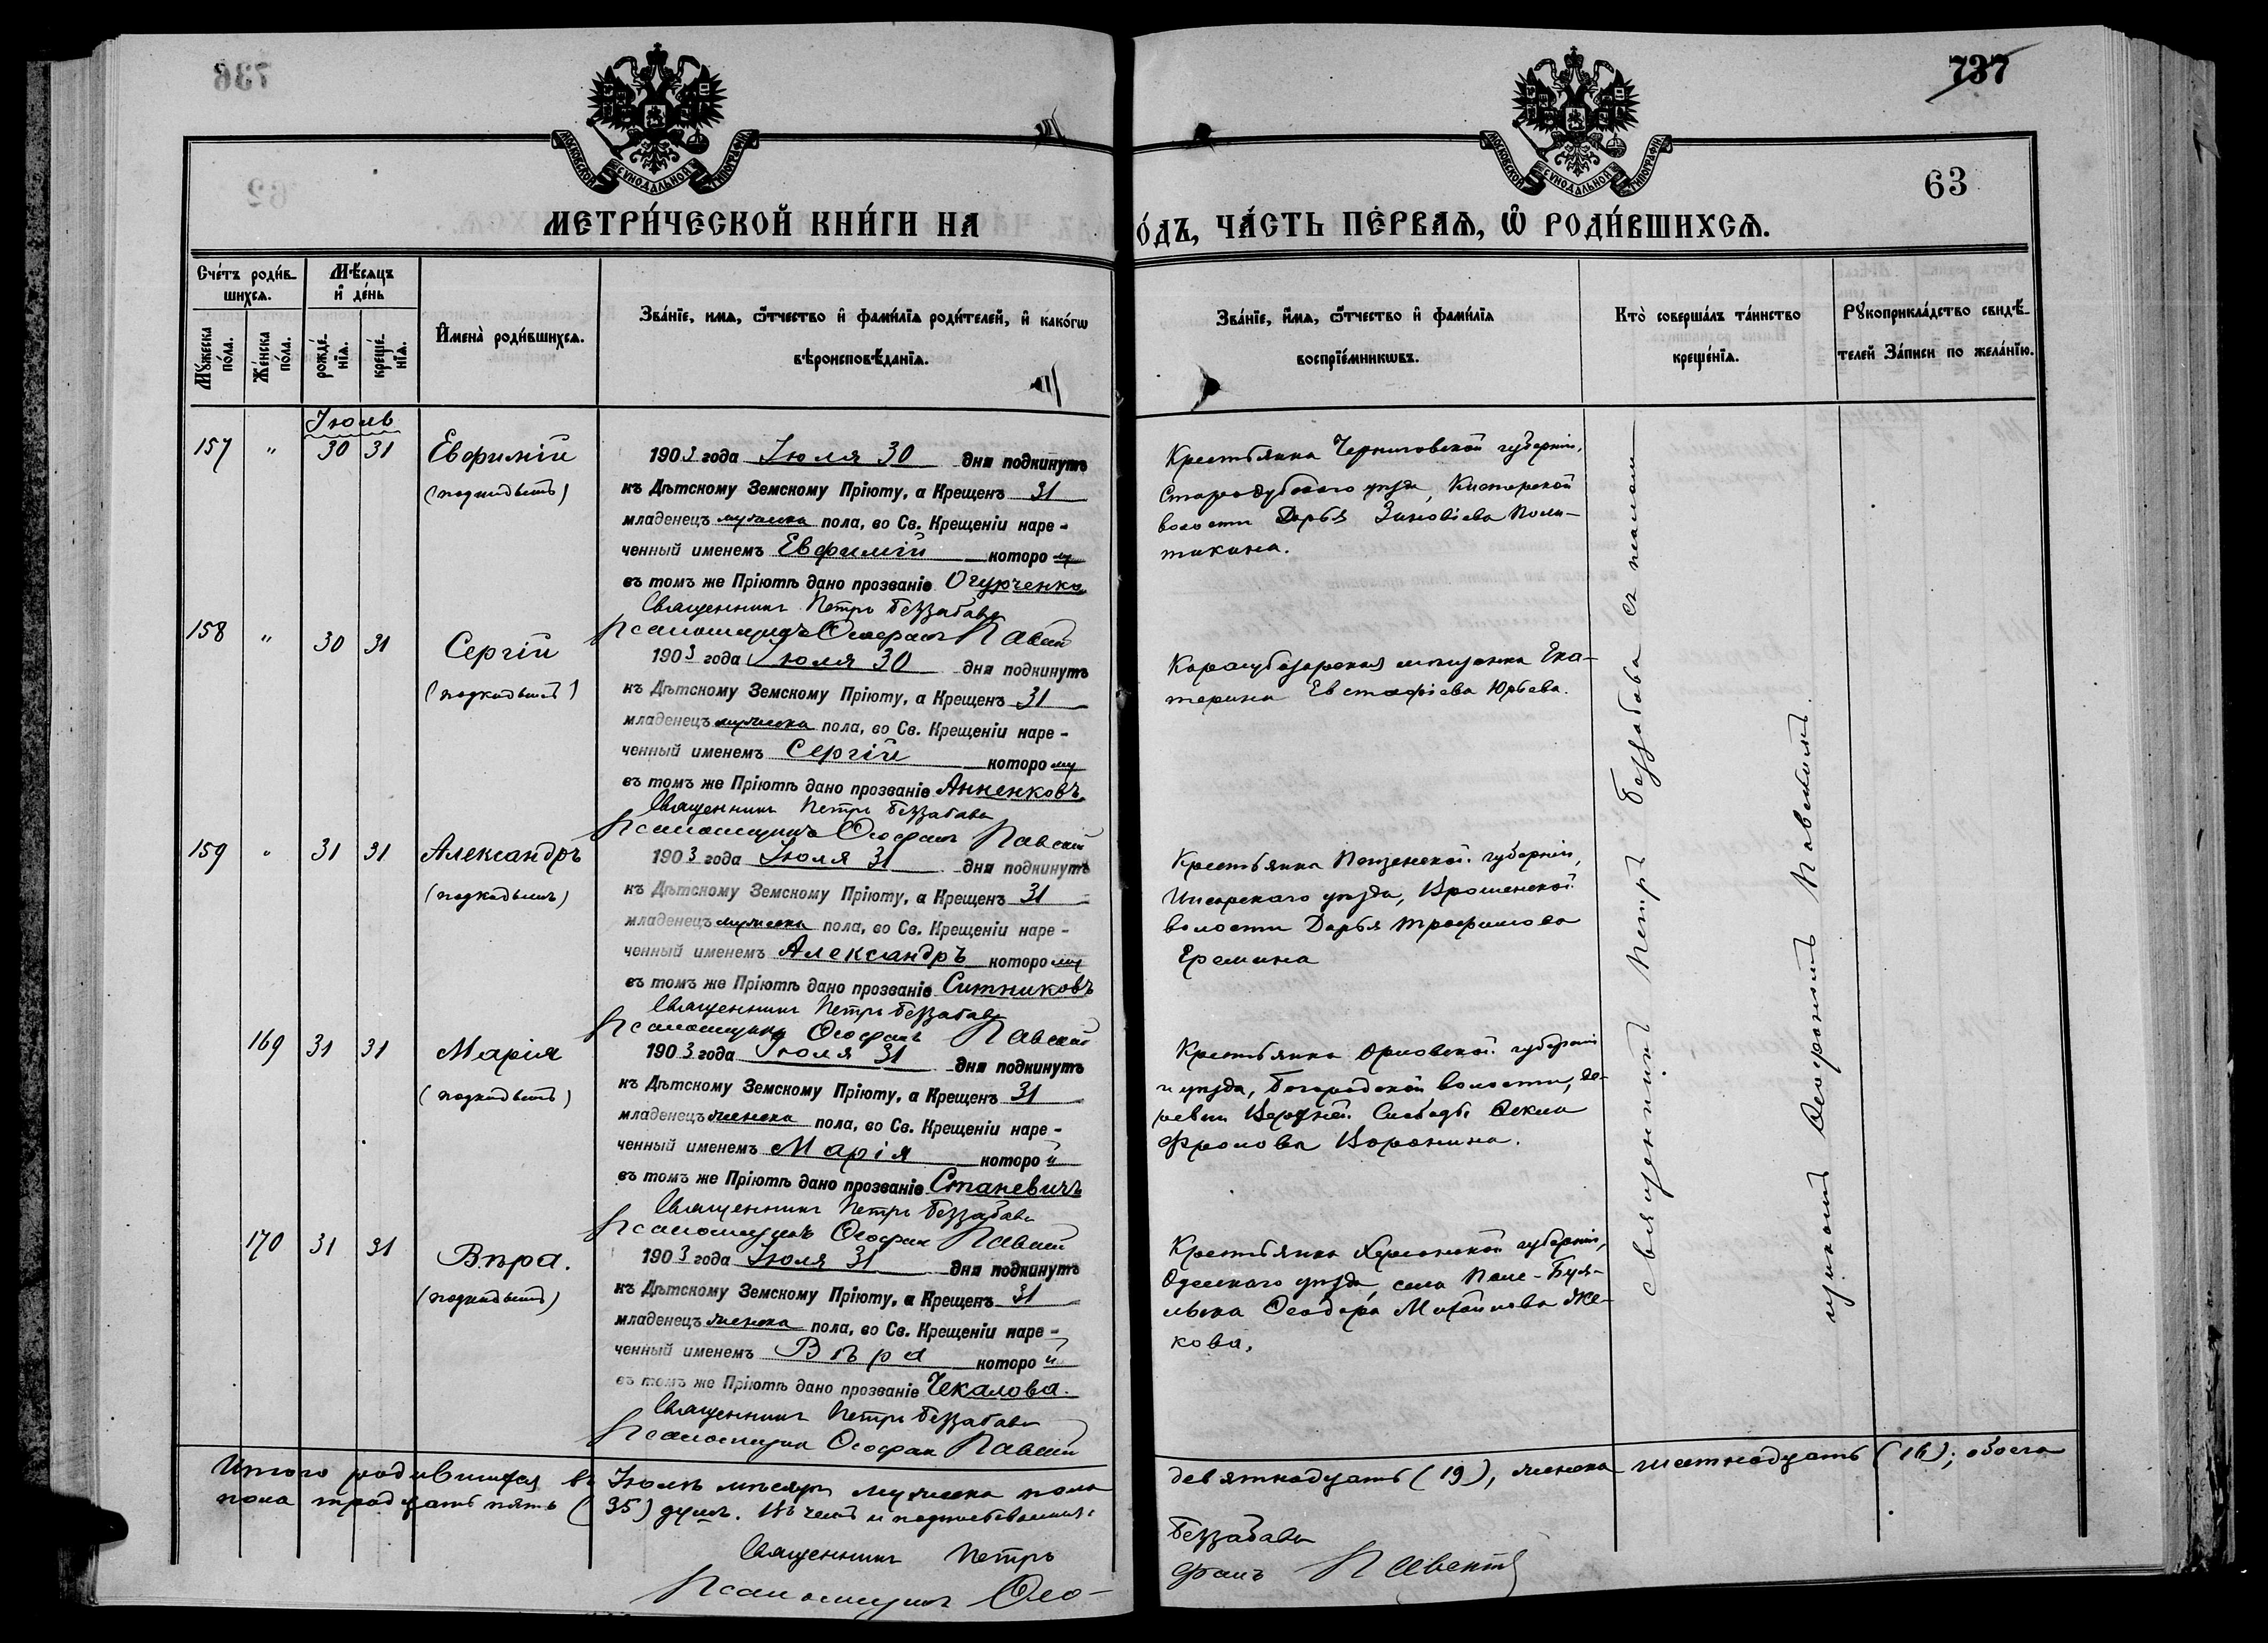 736
737
МОСКОВСКОЙ СѴНОДАЛЬНОЙ ТИПОГРАФІИ
МОСКОВСКОЙ СѴНОДАЛЬНОЙ ТИПОГРАФІИ
62
63
МЕТРИ́ЧЕСКОЙ КНИ́ГИ НА
О́ДЪ, ЧА́СТЬ ПЕ́РВАѦ, Ѿ РОДИ́ВШИХСѦ.
Сче́тъ роди́в-
шихсѧ.
Мꙋжеска по́ла.
Же́нска по́ла.
Мѣ́сѧцъ
и҆ де́нь
рожде́-
нїѧ.
креще́-
нїѧ.
И҆мена̀ роди́вшихсѧ.
Зва́нїе, имѧ, ѻ҆́тчество и҆ фами́лїѧ роди́телей, и҆ како́гѡ
вѣроисповѣ́данїѧ.
Зва́нїе, и҆́мѧ, ѻ҆́тчество и҆ фами́лїѧ
воспрїе́мникѡвъ.
Кто̀ соверша́лъ та́инство
креще́нїѧ.
Рꙋкоприкла́дство свидѣ́-
телей За́писи по жела́нїю.
Іюль
157 " 30 31 Евфимій
(подкидышъ)
1903 года Іюля 30 дня подкинутъ
къ Дѣтскому Земскому Пріюту, а Крещенъ 31
младенецъ мужеска пола, во Св. Крещеніи наре-
ченный именемъ Евфимій которому
въ томъ же Пріютѣ дано прозваніе Огурченко
Священникъ Петръ Беззабава
Псаломщикъ Ѳеофанъ Павскій
Крестьянка Черниговской губерніи,
Стародубскаго уѣзда, Кистерской
волости Дарья Зиновіева Поли-
тикина.
158 " 30 31 Сергій
(подкидышъ)
1903 года Іюля 30 дня подкинутъ
къ Дѣтскому Земскому Пріюту, а Крещенъ 31
младенецъ мужеска пола, во Св. Крещеніи наре-
ченный именемъ Сергій которому
въ томъ же Пріютѣ дано прозваніе Анненковъ
Священникъ Петръ Беззабава
Псаломщикъ Ѳеофанъ Павскій
Карасубазарская мѣщанка Ека-
терина Евстафіева Юрьева.
159 " 31 31 Александръ
(подкидышъ)
1903 года Іюля 31 дня подкинутъ
къ Дѣтскому Земскому Пріюту, а Крещенъ 31
младенецъ мужеска пола, во Св. Крещеніи наре-
ченный именемъ Александръ которому
въ томъ же Пріютѣ дано прозваніе Ситниковъ
Священникъ Петръ Беззабава
Псаломщикъ Ѳеофанъ Павскій
Крестьянка Пензенской губерніи,
Инсарскаго уѣзда,
волости Дарья Трофимова
Еремина
169 31 31 Марія
(подкидышъ)
1903 года Іюля 31 дня подкинутъ
къ Дѣтскому Земскому Пріюту, а Крещенъ 31
младенецъ женска пола, во Св. Крещеніи наре-
ченный именемъ Марія которой
въ томъ же Пріютѣ дано прозваніе Станевичъ
Священникъ Петръ Беззабава
Псаломщикъ Ѳеофанъ Павскій
Крестьянка Орловской губерніи
и уѣзда, Богородской волости, де-
ревни Верхней Слободы Ѳекла
Фролова Воронина.
170 31 31 Вѣра.
(подкидышъ)
1903 года Іюля 31 дня подкинутъ
къ Дѣтскому Земскому Пріюту, а Крещенъ 31
младенецъ женска пола, во Св. Крещеніи наре-
ченный именемъ Вѣра которой
въ томъ же Пріютѣ дано прозваніе Чекалова.
Священникъ Петръ Беззабава
Псаломщикъ Ѳеофанъ Павскій
Крестьянка Херсонской губерніи,
Одесскаго уѣзда, села
Ѳеодора Михайлова
кова.
Священникъ Петръ Беззабава съ псалом-
щикомъ Ѳеофаномъ Павскимъ.
Итого родившихся въ Іюлѣ мѣсяцѣ мужеска пола девятнадцать (19), женска шестнадцать (16); обоего
пола тридцать пять (35) душъ. Въ чемъ и подписываемся:
Священникъ Петръ Беззабава
Псаломщикъ Ѳео-
фанъ Павскій